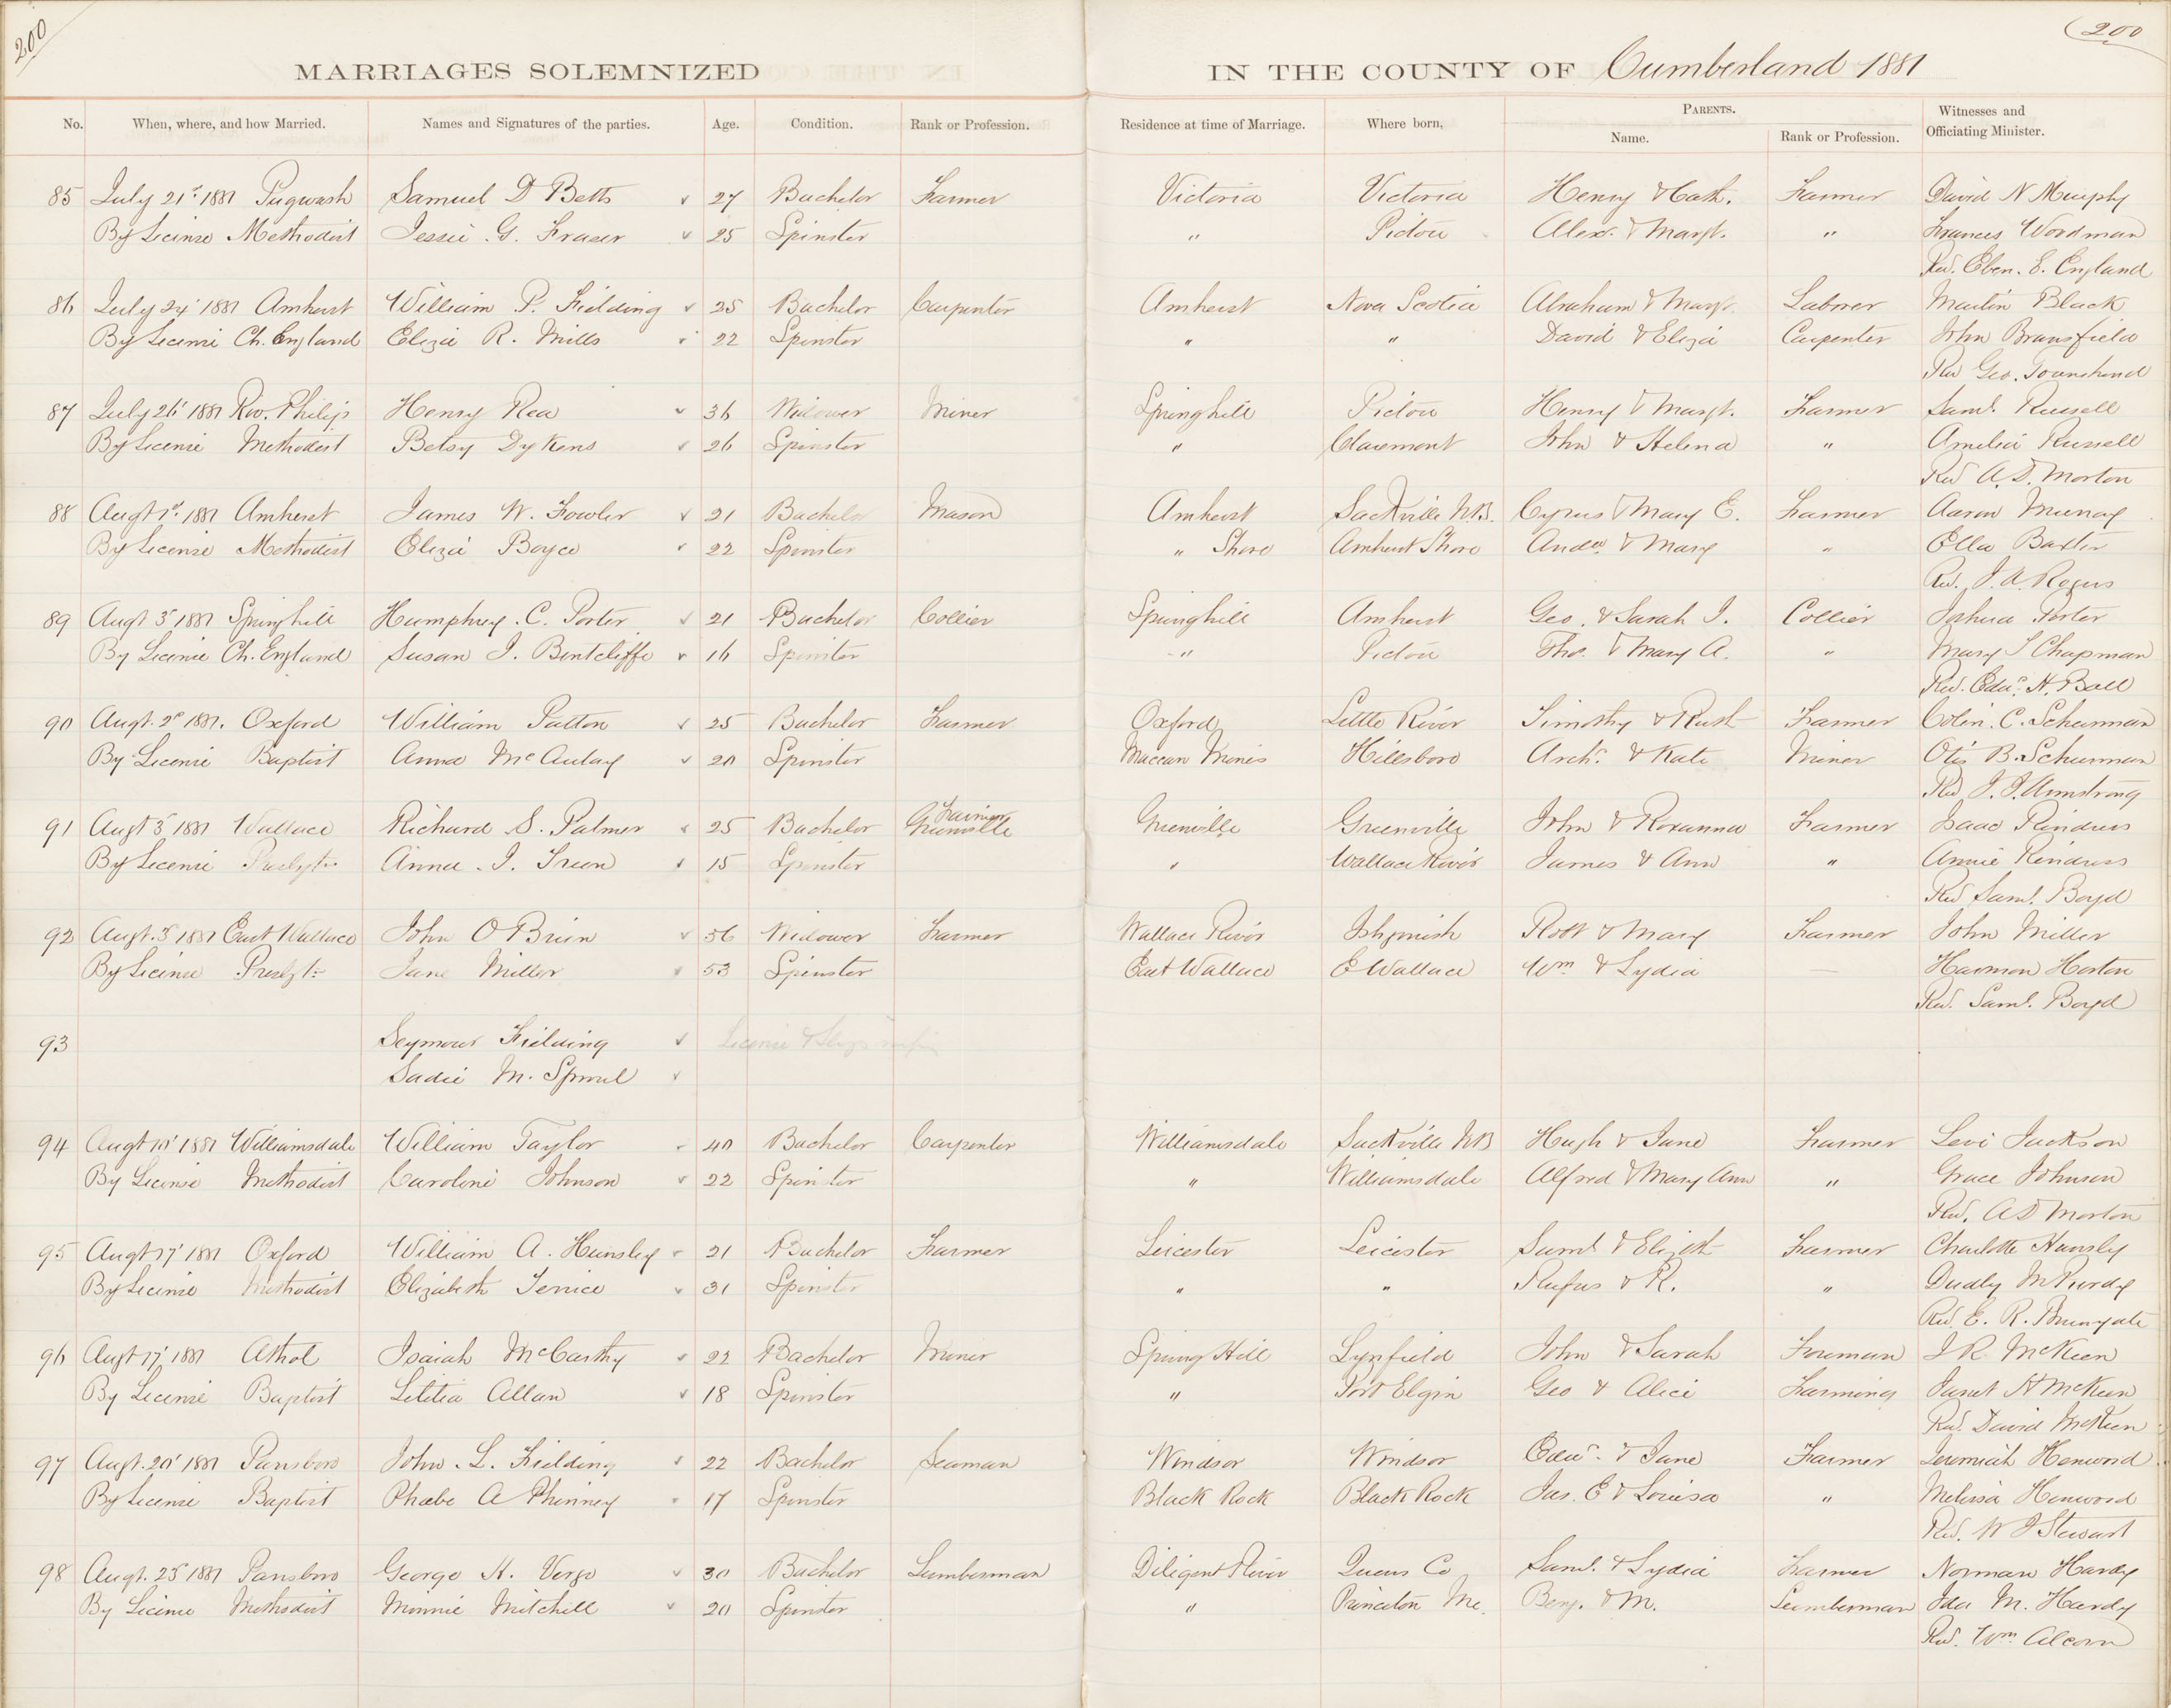 200
200
MARRIAGES SOLEMNIZED IN THE COUNTY OF Cumberland 1881
No. When, where, and how Married. Names and Signatures of the parties. Age. Condition. Rank or Profession. Residence at time of Marriage. Where born, PARENTS. Name. Rank or Profession. Witnesses and Officiating Minister.
85 July 21st 1881 Pugwash Samuel D Betts 27 Bachelor Farmer Victoria Victoria Henry & Cath. Farmer David N Murphy
By License Methodist Jessie G. Fraser 25 Spinster " Pictou Alexr. & Margt. " Frances Woodman
Revd. Eben. E. England
86 July 24' 1881 Amherst William P. Fielding 25 Bachelor Carpenter Amherst Nova Scotia Abraham & Margt. Laborer Martin Black
By License Ch. England Eliza R. Mills 22 Spinster " " David & Eliza Carpenter John Bransfield
Rev Geo. Townshend
87 July 26' 1881 Riv. Philip Henry Rea 36 Widower Miner Springhill Pictou Henry & Margt. Farmer Saml. Russell
By License Methodist Betsy Dykens 26 Spinster " Claremont John & Helena " Amelia Russell
Revd A. D. Morton
88 Augt 1st 1881 Amherst James W. Fowler 21 Bachelor Mason Amherst Sackville N.B. Cyrus & Mary E. Farmer Aaron Murray
By License Methodist Eliza Boyce 22 Spinster " Shore Amherst Shore Andw & Mary " Ella Baxter
Revd. J. A. Rogers
89 Augt 3d 1881 Springhill Humphrey C. Porter 21 Bachelor Collier Springhill Amherst Geo. & Sarah J. Collier Joshua Porter
By License Ch. England Susan J. Bentcliffe 16 Spinster " Pictou Tho. & Mary A. " Mary S Chapman
Revd. Edwd. H. Ball
90 Augt. 2d 1881. Oxford William Patton 25 Bachelor Farmer Oxford Little River Timothy & Ruth Farmer Colin C. Schurman
By License Baptist Anna McAulay 20 Spinster Maccan Mines Hillsboro Archd. & Kate Miner Otis B. Schurman
Revd J. J. Armstrong
91 Augt 3d 1881 Wallace Richard S. Palmer 25 Bachelor Farmer Greenville Greenville John & Roxanna Farmer Isaac Kindress
By License Presbytn. Anna J. Treen 15 Spinster " Wallace River James & Ann " Annie Kindress
Revd Saml. Boyd
92 Augt. 3d 1881 East Wallace John O Brien 56 Widower Farmer Wallace River Robt & Mary Farmer John Miller
By License Presbytn. Jane Miller 53 Spinster East Wallace E Wallace Wm & Lydia — Harmon Horton
Revd. Saml. Boyd
93 Seymour Fielding License &
Sadie M. Sproul
94 Augt 10' 1881 Williamsdale William Taylor 40 Bachelor Carpenter Williamsdale Sackville NB Hugh & Jane Farmer Levi Jackson
By License Methodist Caroline Johnson 22 Spinster " Williamsdale Alfred & Mary Ann " Grace Johnson
Revd. A D Morton
95 Augt 17' 1881 Oxford William A. Hunsley 21 Bachelor Farmer Leicester Leicester Saml & Elizth Farmer Charlotte Hunsly
By License Methodist Elizabeth 31 Spinster " " Rufus & R. " Dudly McPurdy
Revd. E. R. Brunyate
96 Augt 17' 1881 Athol Isaiah McCarthy 22 Bachelor Miner Spring Hill Lynfield John & Sarah Foreman J R McKeen
By License Baptist Letitia Allan 18 Spinster " Port Elgin Geo & Alice Farming Janet H McKeen
Revd. David McKeen
97 Augt. 20' 1881 Parrsboro John L. Fielding 22 Bachelor Seaman Windsor Windsor Edwd. & Jane Farmer Jeremiah Henwood
By License Baptist Phœbe A Phinney 17 Spinster Black Rock Black Rock Jas. E & Louisa " Melissa Henwood
Revd. W J Stewart
98 Augt. 25' 1881 Parrsboro George H. Verge 30 Bachelor Lumberman Diligent River Queens Co Saml. & Lydia Farmer Norman Hardy
By License Methodist Minnie Mitchell 20 Spinster " Princeton Me. Benj. & M. Lumberman Ida M. Hardy
Revd. Wm. Alcorn